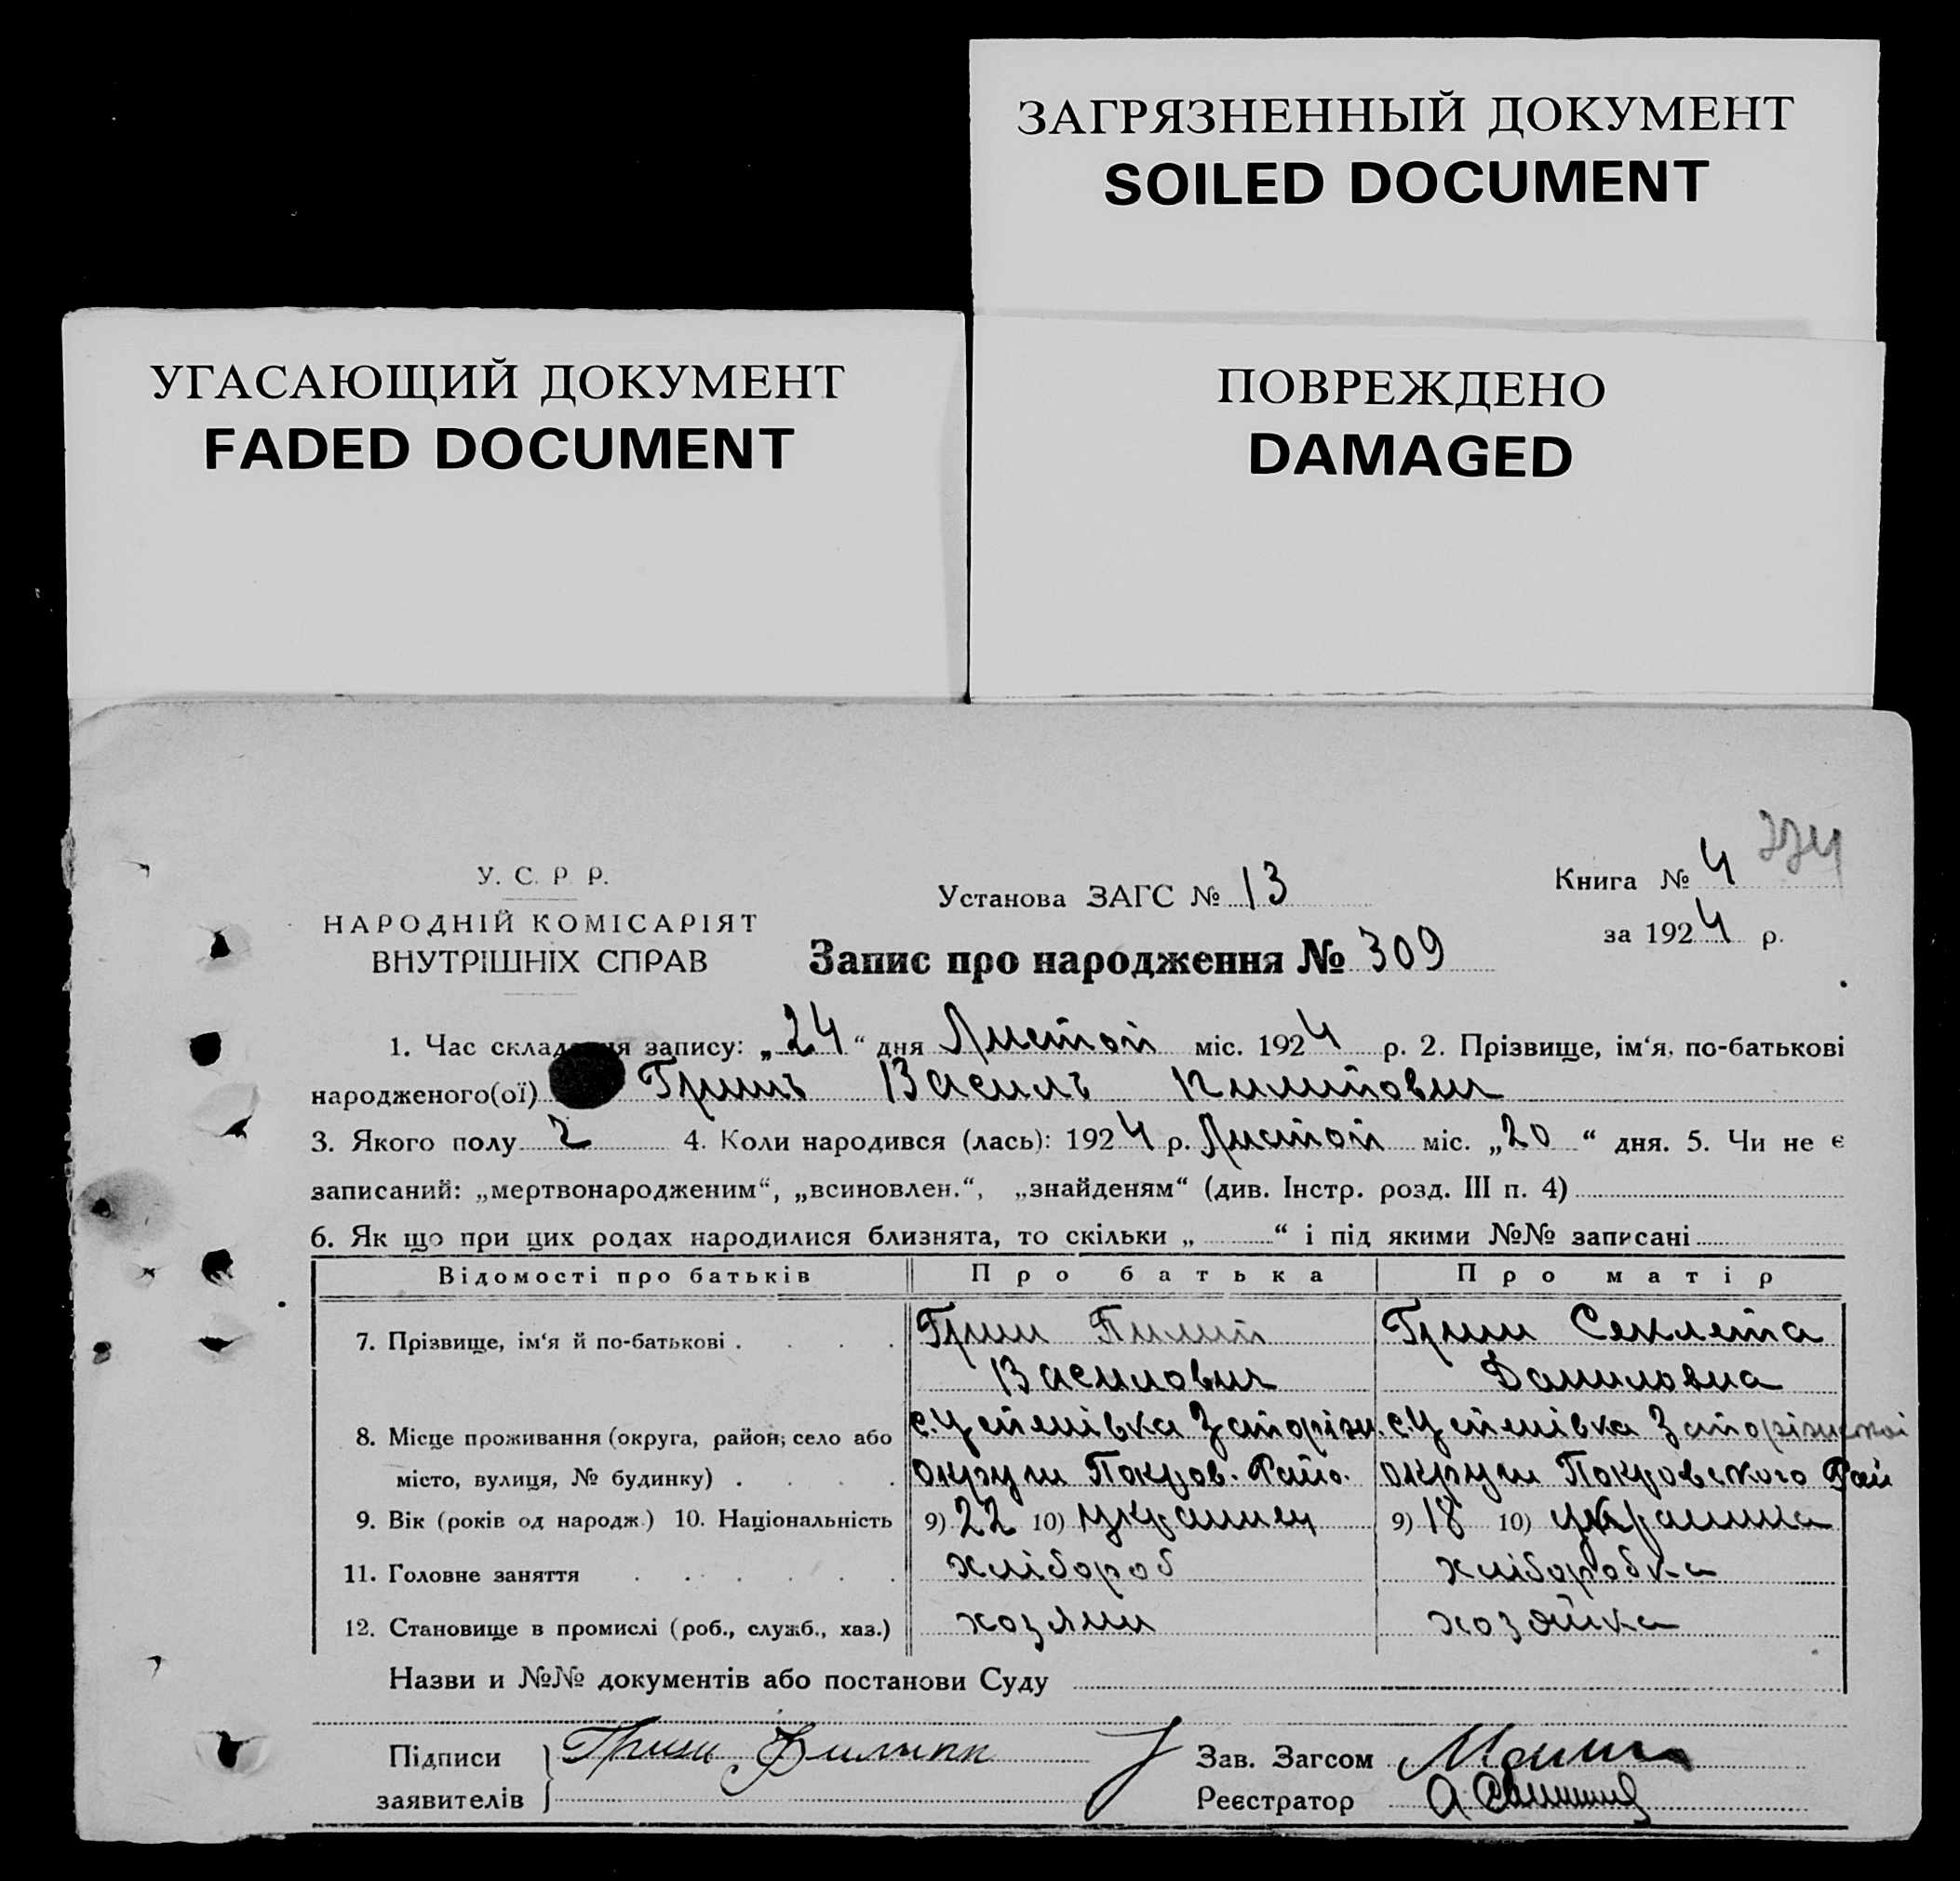 ЗАГРЯЗНЕННЫЙ ДОКУМЕНТ
SOILED DOCUMENT
УГАСАЮЩИЙ ДОКУМЕНТ
FADED DOCUMENT
ПОВРЕЖДЕНО
DAMAGED
У. С. Р. Р.
НАРОДНІЙ КОМІСАРІЯТ
ВНУТРІШНІХ СПРАВ
Установа ЗАГС № 13
Книга № 4
за 1924 р.
Запис про народження № 309
1. Час складення запису: „24“ дня Листоп міс. 1924 р. 2. Прізвище, ім‘я, по-батькові
народженого(ої) Гришъ Василъ Пилипович
3. Якого полу ч 4. Коли народився (лась): 1924 р. Листоп міс. „20“ дня. 5. Чи не є
записаний: „мертвонародженим“, „всиновлен.“, „знайденям“ (див. Інстр. розд. III п. 4)
6. Як що при цих родах народилися близнята, то скільки „ “ і під якими №№ записані
Відомості про батьків Про батька Про матір
7. Прізвище, ім‘я й по-батькові Гриш Пилип Гриш Секлета
Василович Даниловна
8. Місце проживання (округа, район; село або с. Успенівка Запорізк. с. Успенівка Запорізької
місто, вулиця, № будинку) округи Покров. Райо. округи Покровського Рай
9. Вік (років од народж.) 10. Національність 9) 22 10) украинец 9) 18 10) украинка
11. Головне заняття хлібороб хліборобка
12. Становище в промислі (роб., служб., хаз.) хозяин хозяйка
Назви и №№ документів або постанови Суду
Підписи Гриш Филипп Зав. Загсом
заявителів Реєстратор